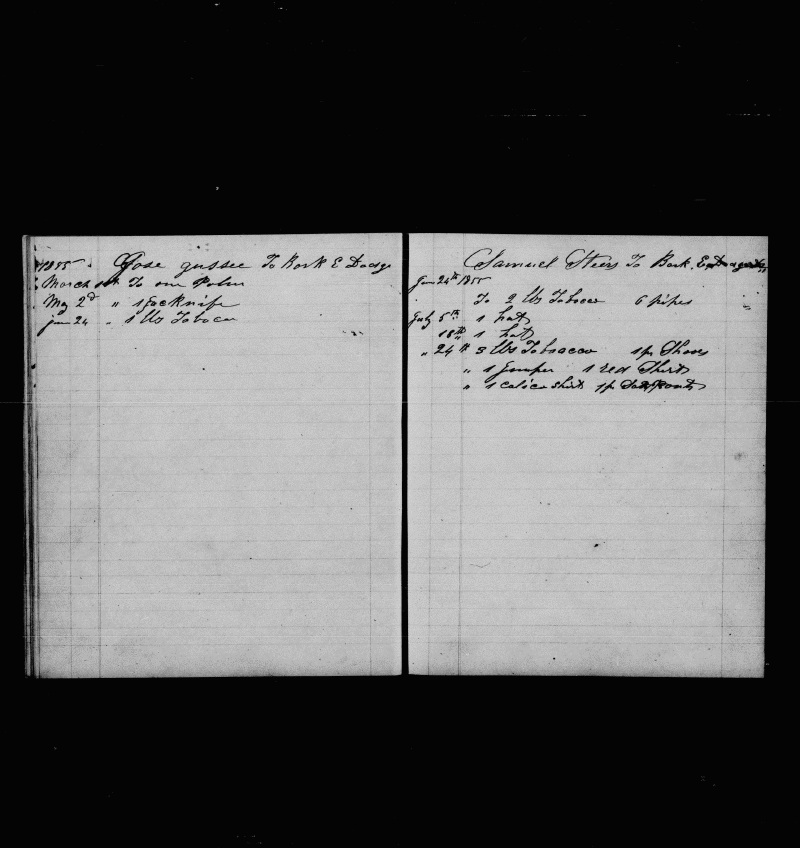 1855 Jose gussee To Bark E Dodge
March To one Palm
May 2d " 1 jacknife
jun 24 " 1 lbs Tobaco
Samuel Steers To Bark
Jun 24th 1855
To 2 lbs Tobacco 6 pipes
July 5th 1 hat
18th 1 hat
" 24th 3 lbs Tobacco 1 pr Shoes
" 1 jumper 1 red Shirt
" 1 calico shirt 1 pr pants